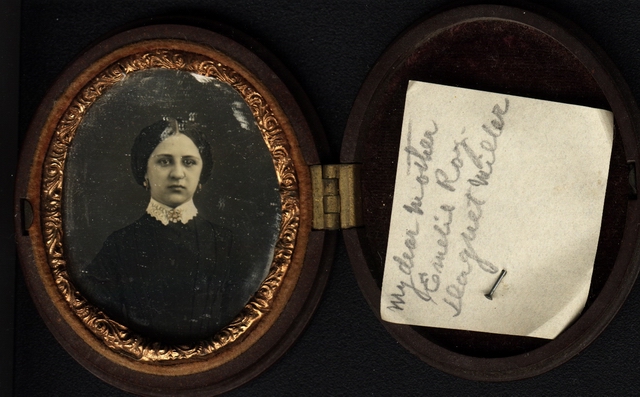 My dear Mother
Emelie Roy.
Miller